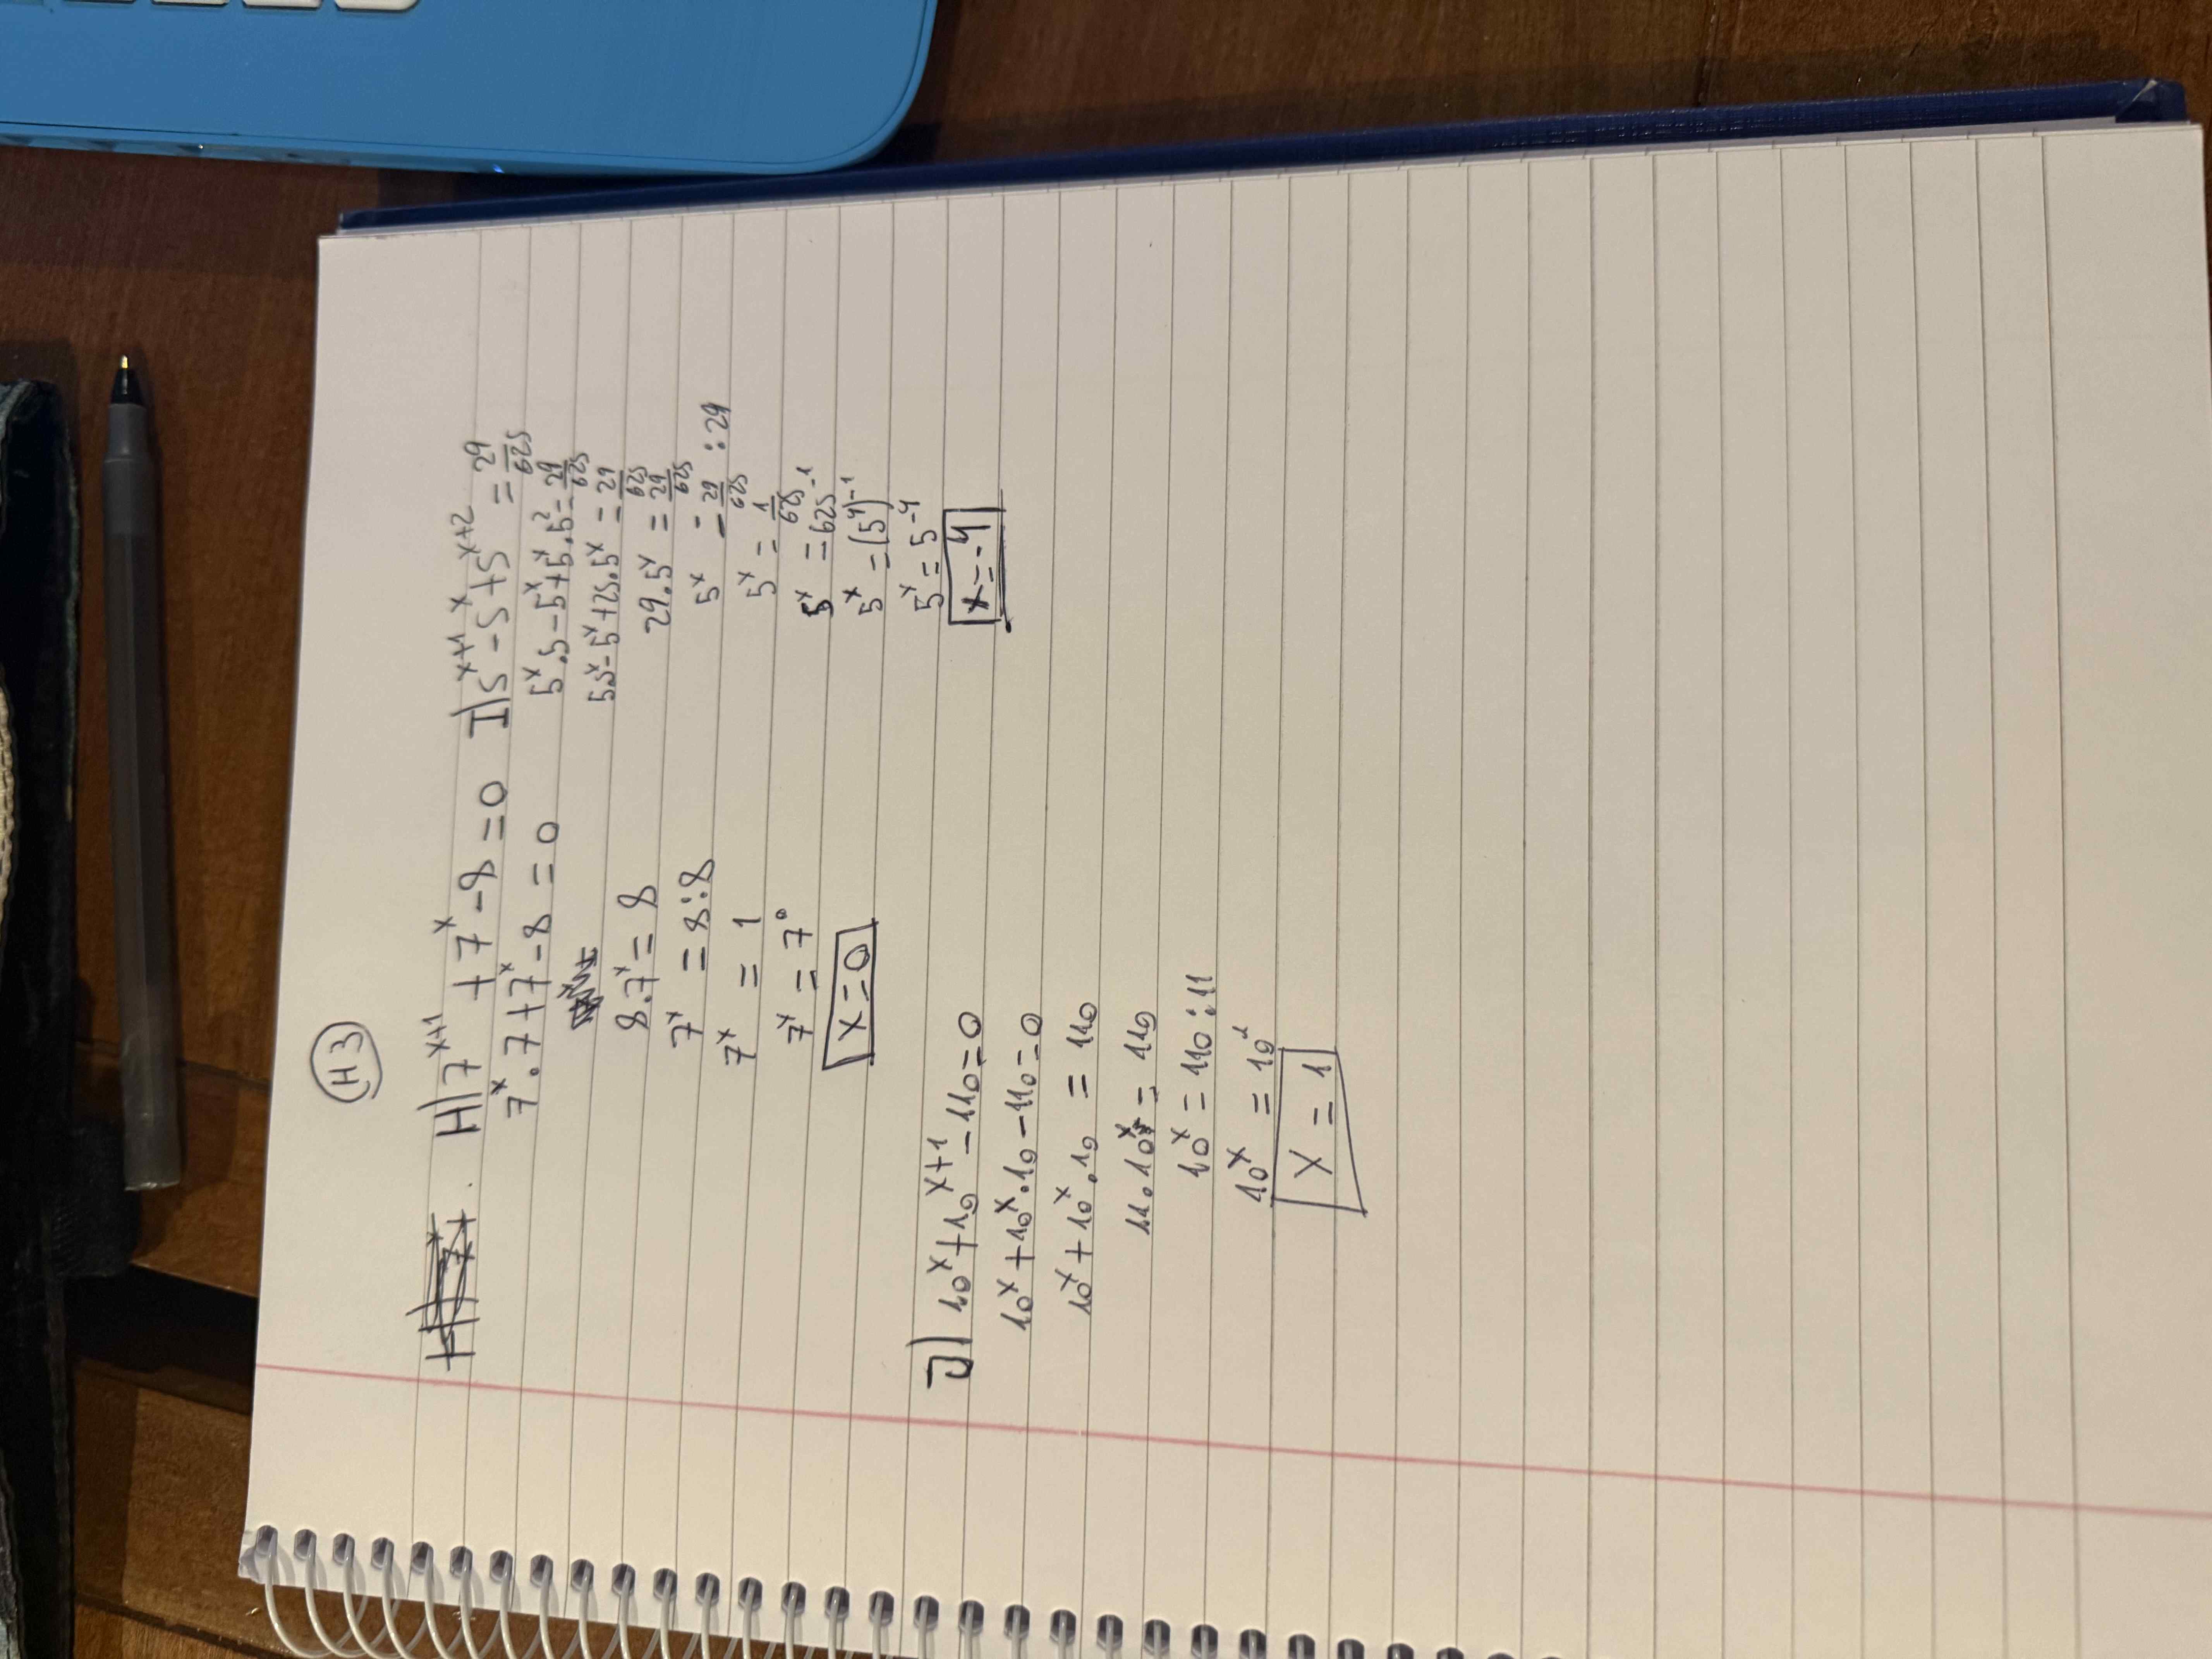 H3
H) 7^{x+1} + 7^x - 8 = 0
7^x . 7 + 7^x - 8 = 0
8 . 7^x = 8
7^x = 8 : 8
7^x = 1
7^x = 7^0
x = 0
I) 5^{x+1} - 5^x + 5^{x+2} = 29/625
5^x . 5 - 5^x + 5^x . 5^2 = 29/625
5.5^x - 5^x + 25.5^x = 29/625
29 . 5^x = 29/625
5^x = 29/625 : 29
5^x = 1/625
5^x = 625^{-1}
5^x = (5^4)^{-1}
5^x = 5^{-4}
x = -4
J) 10^x + 10^{x+1} - 110 = 0
10^x + 10^x . 10 - 110 = 0
10^x + 10^x . 10 = 110
11 . 10^x = 110
10^x = 110 : 11
10^x = 10^1
x = 1